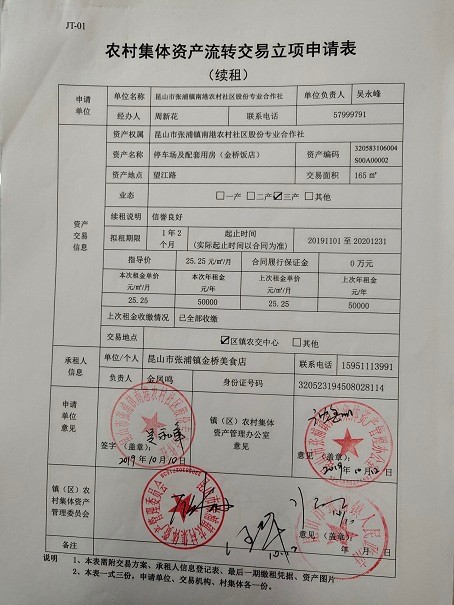 JT-01
农村集体资产流转交易立项申请表
（续租）
申请单位
单位名称 昆山市张浦镇南港农村社区股份专业合作社 单位负责人 吴永峰
经办人 周新花 联系电话 57999791
资产交易信息
资产权属 昆山市张浦镇南港农村社区股份专业合作社
资产名称 停车场及配套用房（金桥饭店） 资产编码 320583106004S00A00002
资产地点 望江路 交易面积 165㎡
业态 □一产 □二产 ☑三产 □其他
续租说明 信誉良好
拟租期限 1年2个月 起止时间（实际起止时间以合同为准） 20191101 至 20201231
指导价 25.25 元/㎡/月 合同履行保证金 0 万元
本次租金单价 元/㎡/月 本次年租金 元/年 上次租金单价 元/㎡/月 上次年租金 元/年
25.25 50000 25.25 50000
上次租金收缴情况 已全部收缴
交易地点 ☑区镇农交中心 □其他
承租人信息
单位/个人 昆山市张浦镇金桥美食店 联系电话 15951113991
负责人 金凤鸣 身份证号码 320523194508028114
申请单位意见
吴永峰
签字（盖章）：
2019年10月10日
镇（区）农村集体资产管理办公室意见
意见（盖章）：
2019年10月12日
镇（区）农村集体资产管理委员会
10.12
意见（盖章）：
年 月 日
备注
说明 1、本表需附交易方案、承租人信息登记表、最后一期缴租凭据、资产图片
2、本表一式三份，申请单位、交易机构、村集体各一份。